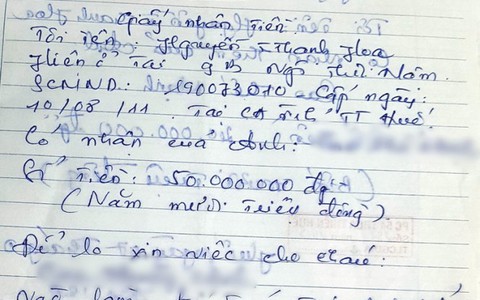 Giấy nhận Tiền
Tôi Tên: Nguyễn Thanh Hoa
Hiện ở Tại Ngô Thời Nhậm.
SCMND: 190073010 Cấp ngày:
10/08/11. Tại CA Tỉnh TT Huế.
Có nhận của Anh:
Số Tiền: 50.000.000 đg
(Năm mươi Triệu đồng).
Để lo xin việc cho cháu: